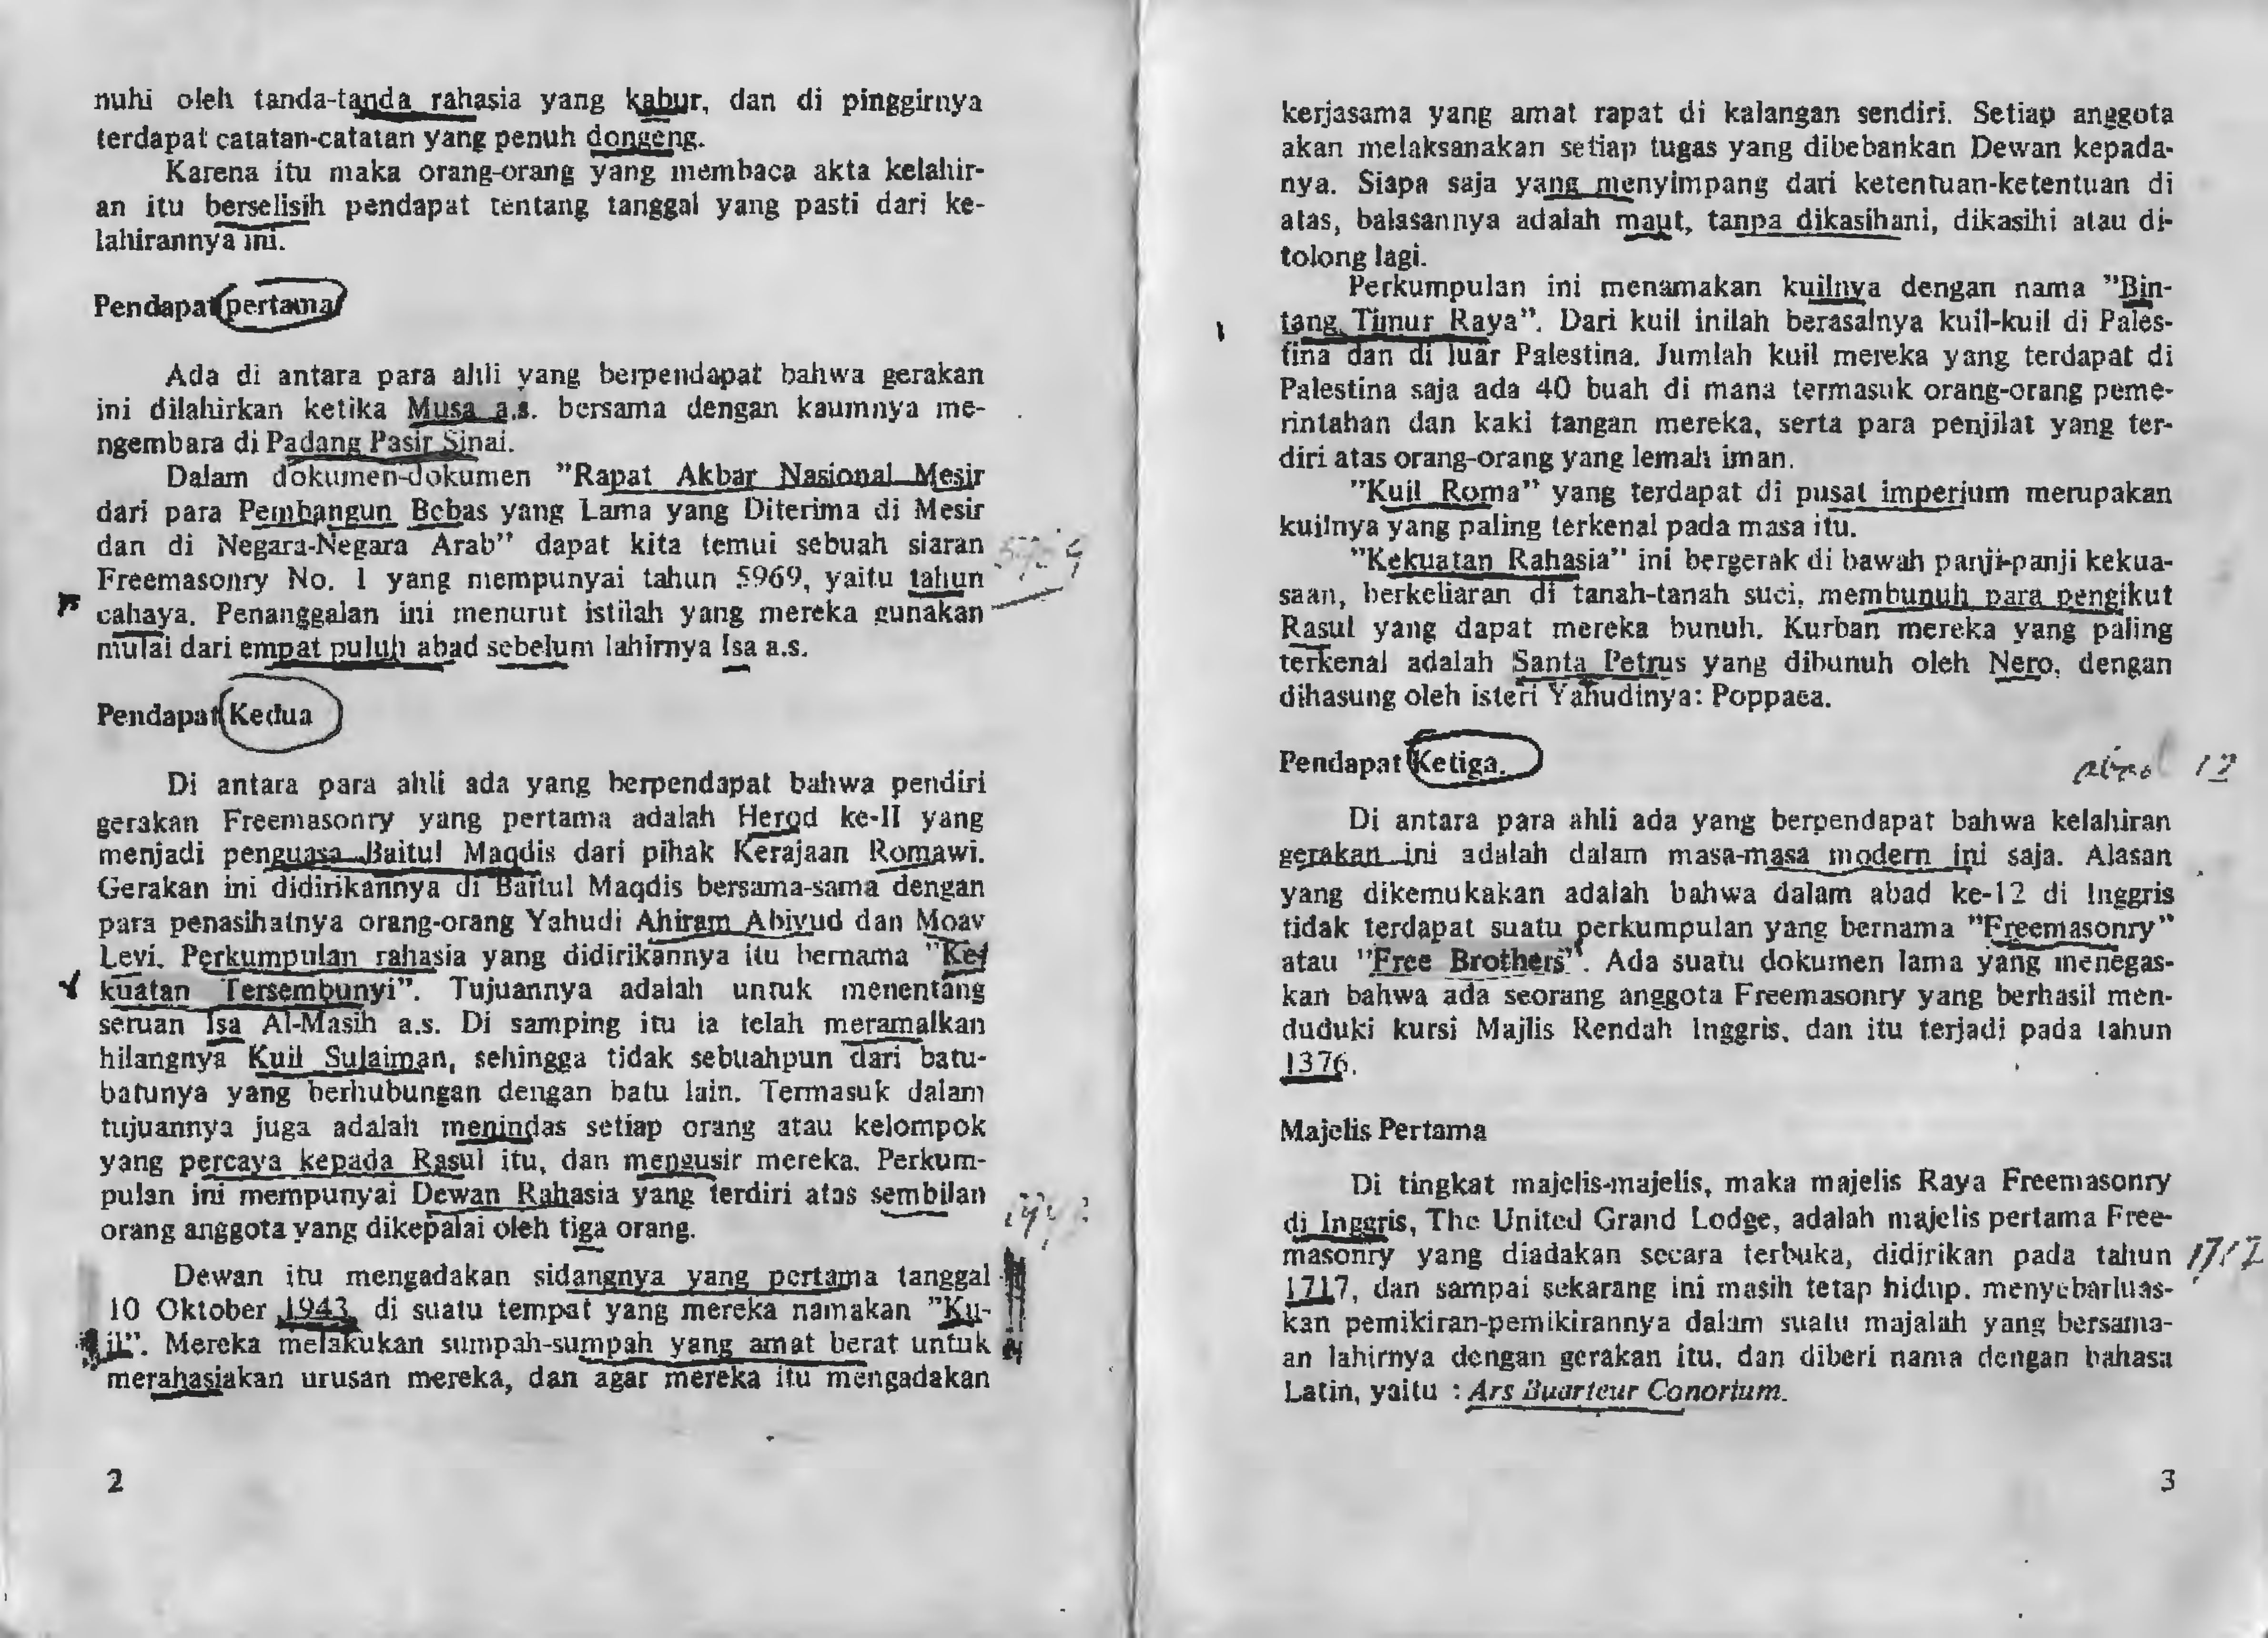 nuhi oleh tanda-tanda rahasia yang kabur, dan di pinggirnya
terdapat catatan-catatan yang penuh dongeng.
Karena itu maka orang-orang yang membaca akta kelahir-
an itu berselisih pendapat tentang tanggal yang pasti dari ke-
lahirannya ini.
Pendapat pertama
Ada di antara para ahli yang berpendapat bahwa gerakan
ini dilahirkan ketika Musa a.s. bersama dengan kaumnya me-
ngembara di Padang Pasir Sinai.
Dalam dokumen-dokumen "Rapat Akbar Nasional Mesir
dari para Pembangun Bebas yang Lama yang Diterima di Mesir
dan di Negara-Negara Arab" dapat kita temui sebuah siaran
Freemasonry No. 1 yang mempunyai tahun 5969, yaitu tahun
cahaya. Penanggalan ini menurut istilah yang mereka gunakan
mulai dari empat puluh abad sebelum lahirnya Isa a.s.
Pendapat Kedua
Di antara para ahli ada yang berpendapat bahwa pendiri
gerakan Freemasonry yang pertama adalah Herod ke-II yang
menjadi penguasa Baitul Maqdis dari pihak Kerajaan Romawi.
Gerakan ini didirikannya di Baitul Maqdis bersama-sama dengan
para penasihatnya orang-orang Yahudi Ahiram Abiyud dan Moav
Levi. Perkumpulan rahasia yang didirikannya itu bernama "Ke-
kuatan Tersembunyi". Tujuannya adalah untuk menentang
seruan Isa Al-Masih a.s. Di samping itu ia telah meramalkan
hilangnya Kuil Sulaiman, sehingga tidak sebuahpun dari batu-
batunya yang berhubungan dengan batu lain. Termasuk dalam
tujuannya juga adalah menindas setiap orang atau kelompok
yang percaya kepada Rasul itu, dan mengusir mereka. Perkum-
pulan ini mempunyai Dewan Rahasia yang terdiri atas sembilan
orang anggota yang dikepalai oleh tiga orang.
Dewan itu mengadakan sidangnya yang pertama tanggal
10 Oktober 1943 di suatu tempat yang mereka namakan "Ku-
il". Mereka melakukan sumpah-sumpah yang amat berat untuk
merahasiakan urusan mereka, dan agar mereka itu mengadakan
2
kerjasama yang amat rapat di kalangan sendiri. Setiap anggota
akan melaksanakan setiap tugas yang dibebankan Dewan kepada-
nya. Siapa saja yang menyimpang dari ketentuan-ketentuan di
atas, balasannya adalah maut, tanpa dikasihani, dikasihi atau di-
tolong lagi.
Perkumpulan ini menamakan kuilnya dengan nama "Bin-
tang Timur Raya". Dari kuil inilah berasalnya kuil-kuil di Pales-
tina dan di luar Palestina. Jumlah kuil mereka yang terdapat di
Palestina saja ada 40 buah di mana termasuk orang-orang peme-
rintahan dan kaki tangan mereka, serta para penjilat yang ter-
diri atas orang-orang yang lemah iman.
"Kuil Roma" yang terdapat di pusat imperium merupakan
kuilnya yang paling terkenal pada masa itu.
"Kekuatan Rahasia" ini bergerak di bawah panji-panji kekua-
saan, berkeliaran di tanah-tanah suci, membunuh para pengikut
Rasul yang dapat mereka bunuh. Kurban mereka yang paling
terkenal adalah Santa Petrus yang dibunuh oleh Nero, dengan
dihasung oleh isteri Yahudinya: Poppaea.
Pendapat Ketiga.
abad 12
Di antara para ahli ada yang berpendapat bahwa kelahiran
gerakan ini adalah dalam masa-masa modern ini saja. Alasan
yang dikemukakan adalah bahwa dalam abad ke-12 di Inggris
tidak terdapat suatu perkumpulan yang bernama "Freemasonry"
atau "Free Brothers". Ada suatu dokumen lama yang menegas-
kan bahwa ada seorang anggota Freemasonry yang berhasil men-
duduki kursi Majlis Rendah Inggris, dan itu terjadi pada tahun
1376.
Majelis Pertama
Di tingkat majelis-majelis, maka majelis Raya Freemasonry
di Inggris, The United Grand Lodge, adalah majelis pertama Free-
masonry yang diadakan secara terbuka, didirikan pada tahun
1717
1717, dan sampai sekarang ini masih tetap hidup, menyebarluas-
kan pemikiran-pemikirannya dalam suatu majalah yang bersama-
an lahirnya dengan gerakan itu, dan diberi nama dengan bahasa
Latin, yaitu : Ars Buarteur Conorium.
3